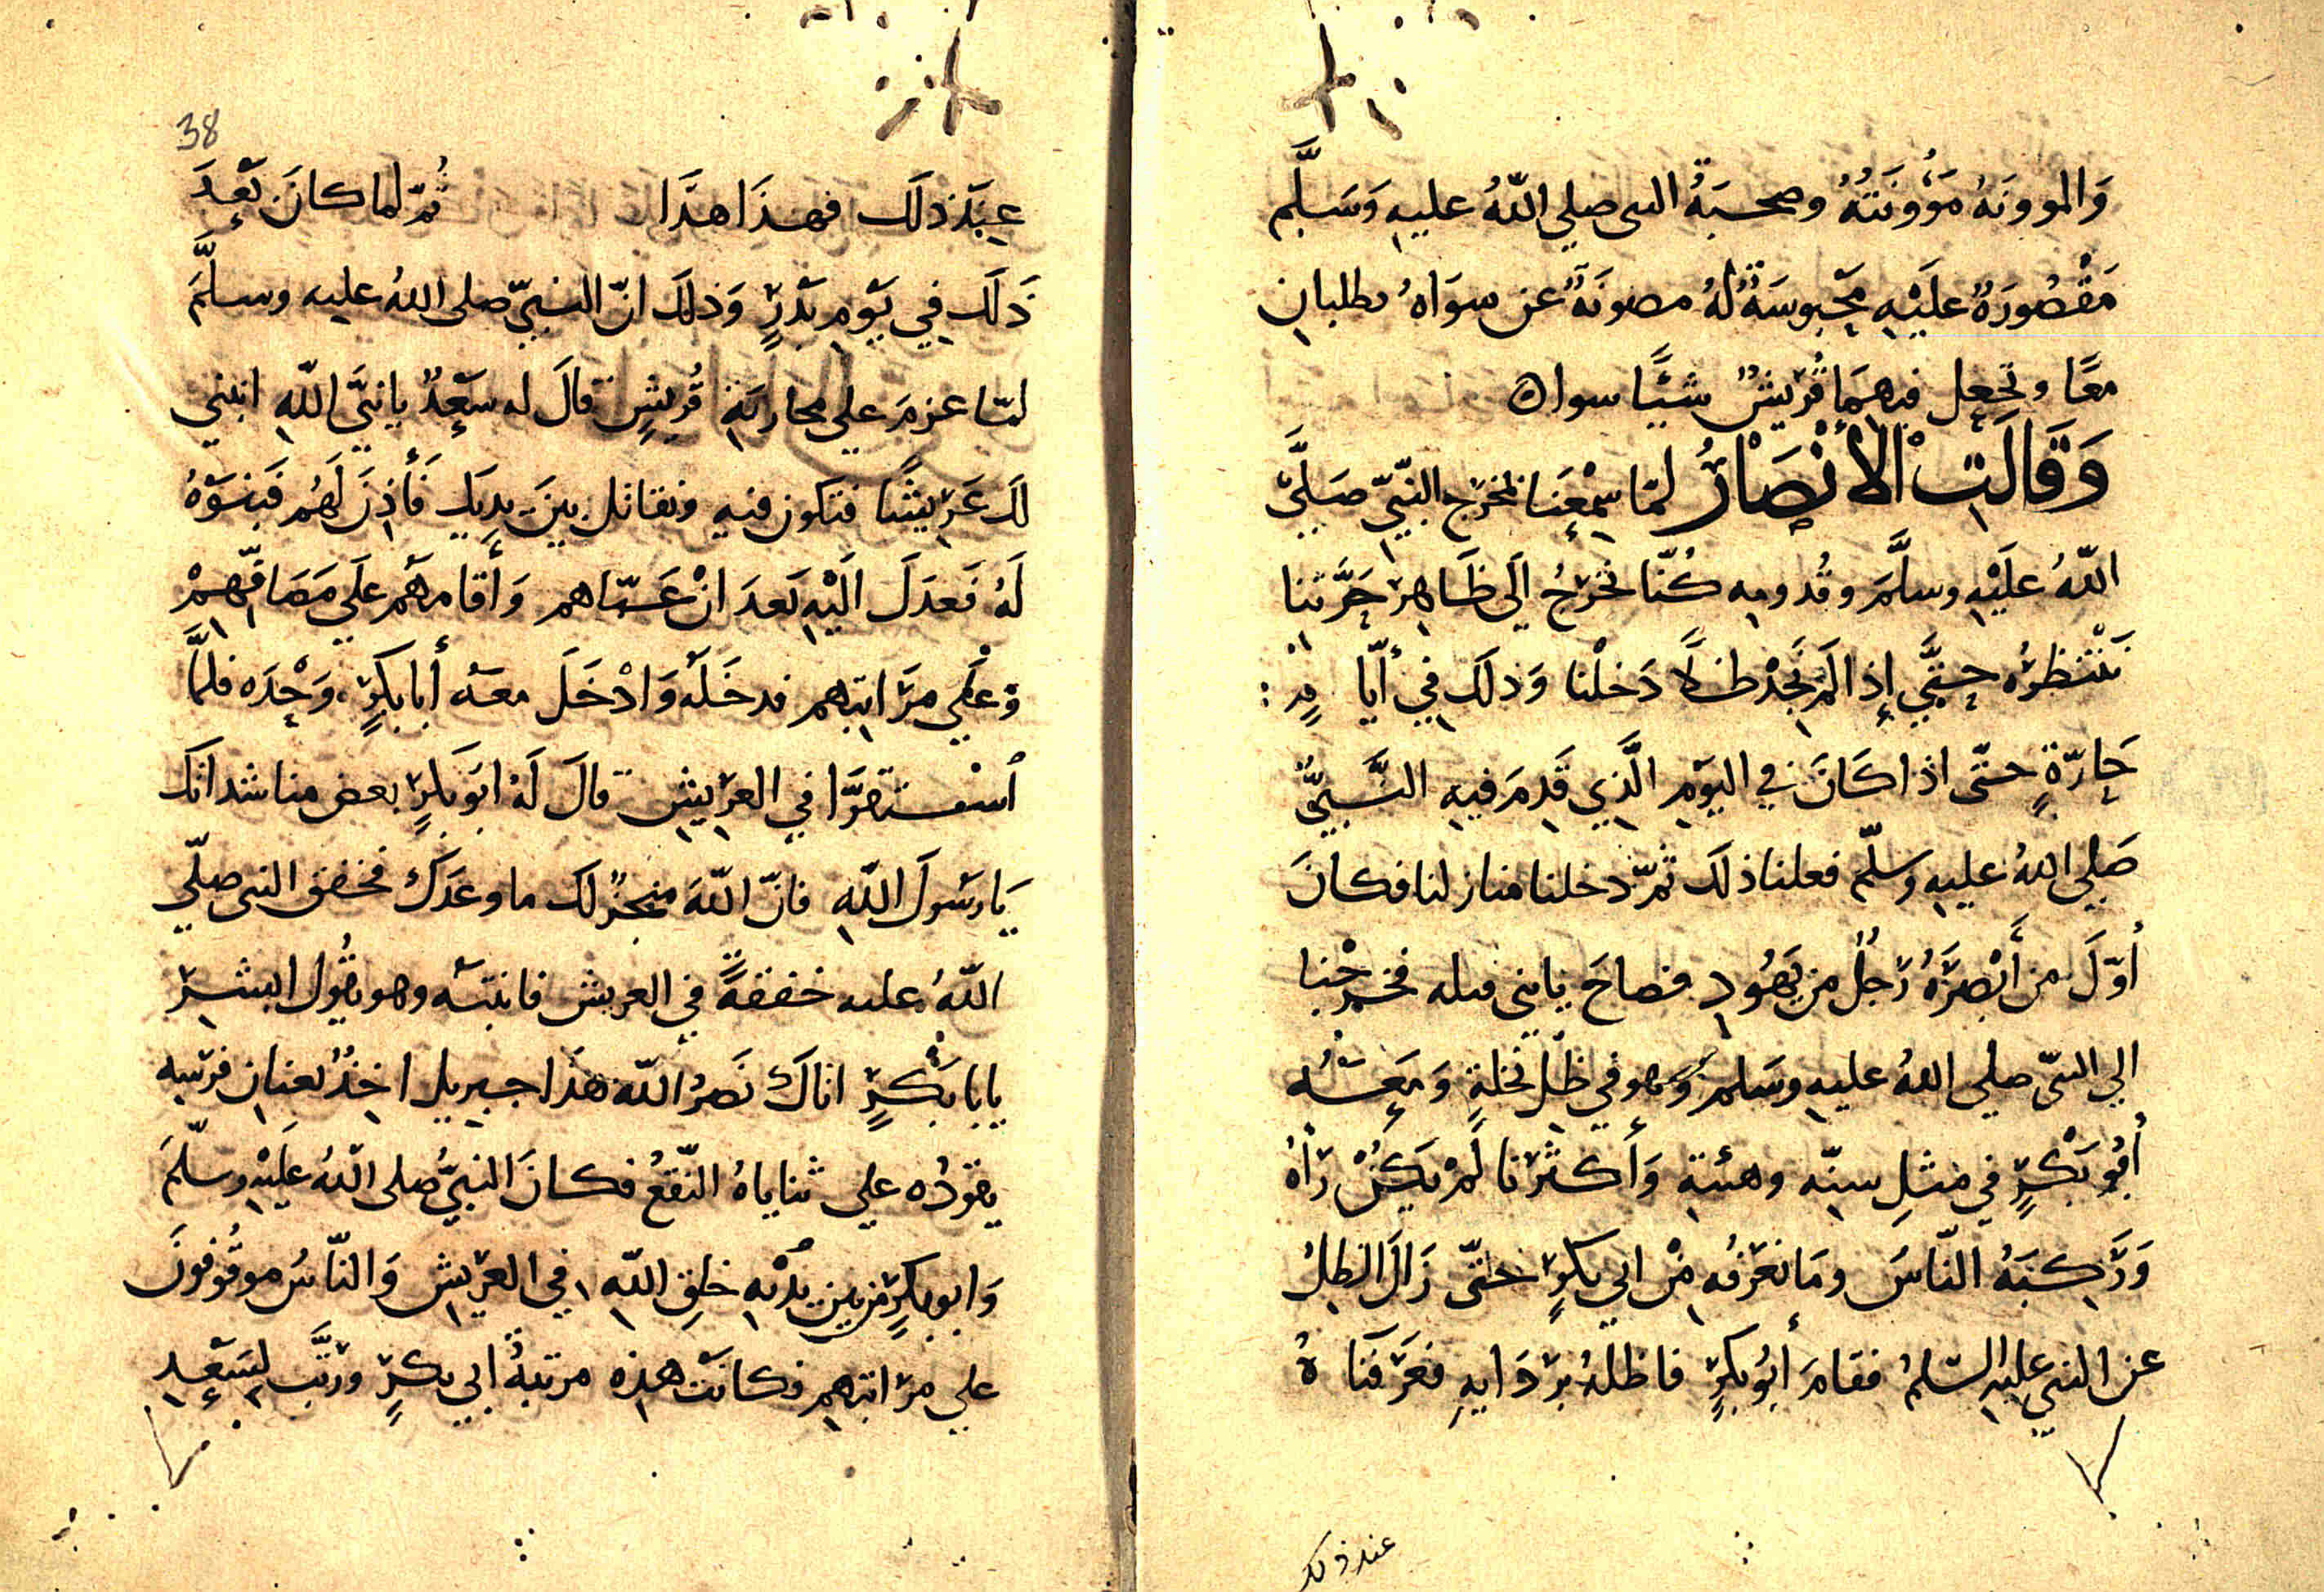 وَالموونَهُ مَؤُونَتُهُ وصحبَةُ النبي صلي اللّهُ عليهِ وَسَلَّم
مَقْصُورَةٌ عليْهِ مَحْبوسَةٌ لهُ مصونَةٌ عن سوَاهُ يطلبانِ
معًا وتجعل فيهِمَا قُريشٌ شيًّا سوا ه
وَقَالَتِ الأَنْصَارُ لمّا سَمِعْنَا مخرَج النبيّ صَلَّى
اللّهُ عَلَيْهِ وسلَّمَ وقُدومِهِ كُنّا نخرُجُ اِلَى ظَاهِرِ حَرَّتنا
نَنْتَظِرُه حتَّي إِذا لَم نَجِدْ ظِلًّا دَخلْنا وَذلَك فِي أيّا مٍ :
حَارّةٍ حتّى اذا كَانَ في اليَوْمِ الَّذِي قَدِمَ فيهِ النَّبيُّ
صَلي اللهُ عليهِ وسلّم فعلنا ذلَك ثمّ دخلنا منازلنا فكانَ
أوّلَ من أَبْصَرَهُ رَجُلٌ من يَهُودٍ فصاحَ يا بني قيله فخرجْنا
الي النبيّ صلي اللهُ عليهِ وسَلم وَهو في ظلِّ نخلةٍ وَمَعَهُ
أبُو بَكْرٍ في مثلِ سِنّه وهئتِهِ وَأكثَرُنا لَمْ يَكنْ رَأهُ
وَرَكِبَهُ النّاسَ ومَا نعْرَفُه مِنْ ابي بكرٍ حتّى زَالَ الظِلُ
عن النبي عليهِ السّلمُ فقامَ أبُو بكرٍ فاظلهُ بردَايهِ فعَرَفنَا هُ
عند ذلك
38
عِنَدَ ذلَك فهذَا هذَا ثُمّ لما كانَ بَعْدَ
ذَلَك فِي يَوْمِ بَدْرٍ وَذلَك انّ النبيّ صلى اللهُ عليه وسلَّمَ
لمّا عزمَ علي محاربَةِ قُريشٍ قالَ له سَعْدٌ يا نبيَّ اللّهِ ابنني
لك عَرِيشًا فتكون فيهِ ونقاتل بينَ يديَك فَأَذِنَ لَهُم فَبنوْهُ
لَهُ فَعدَلَ الَيْهِ بَعدَ انْ عَبّاهم وَأقامهَم علَي مَصَافّهِمْ
وَعَلي مرَاتبهِم فدخَلَه وَادْخَلَ معَه أبا بكرٍ وَحْدَه فلمَّا
اُسْتقرَّا في العرِيشِ قالَ لَهُ ابُو بَكرٍ بعض مناشداتَك
يَا رسُولَ اللّهِ فانّ اللّهَ منجزٌ لك ما وعَدَك فخفق النبي صلّي
اللّهُ عليه خفقةً في العريش فانتبَه وهو يقُول ابشِرْ
يابا بَكْرٍ اتاكَ نَصرُ اللّه هذَا جبريل اخِذٌ بعنانِ فرَسِهِ
يقودُه علي ثناياهُ النّقعُ فكانَ النبيُّ صلى اللّهُ عَلَيْهِ وسلّمَ
وَابو بكرٍ من بين يدَيْهِ خلقِ اللّهِ في العرِيشِ وَالنّاسُ موقُوفونَ
علي مرَاتبهِم فكانَت هذِه مرتبةُ ابي بكرٍ ورتَّب لِسَعْدٍ